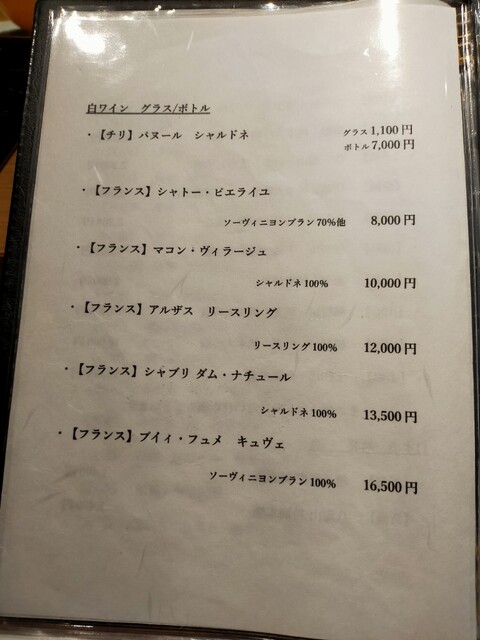 白ワイン　グラス/ボトル
・【チリ】パヌール　シャルドネ　グラス 1,100 円
ボトル 7,000 円
・【フランス】シャトー・ピエライユ
ソーヴィニヨンブラン 70％他　8,000 円
・【フランス】マコン・ヴィラージュ
シャルドネ 100％　10,000 円
・【フランス】アルザス　リースリング
リースリング 100％　12,000 円
・【フランス】シャブリ ダム・ナチュール
シャルドネ 100％　13,500 円
・【フランス】プイィ・フュメ　キュヴェ
ソーヴィニヨンブラン 100％　16,500 円